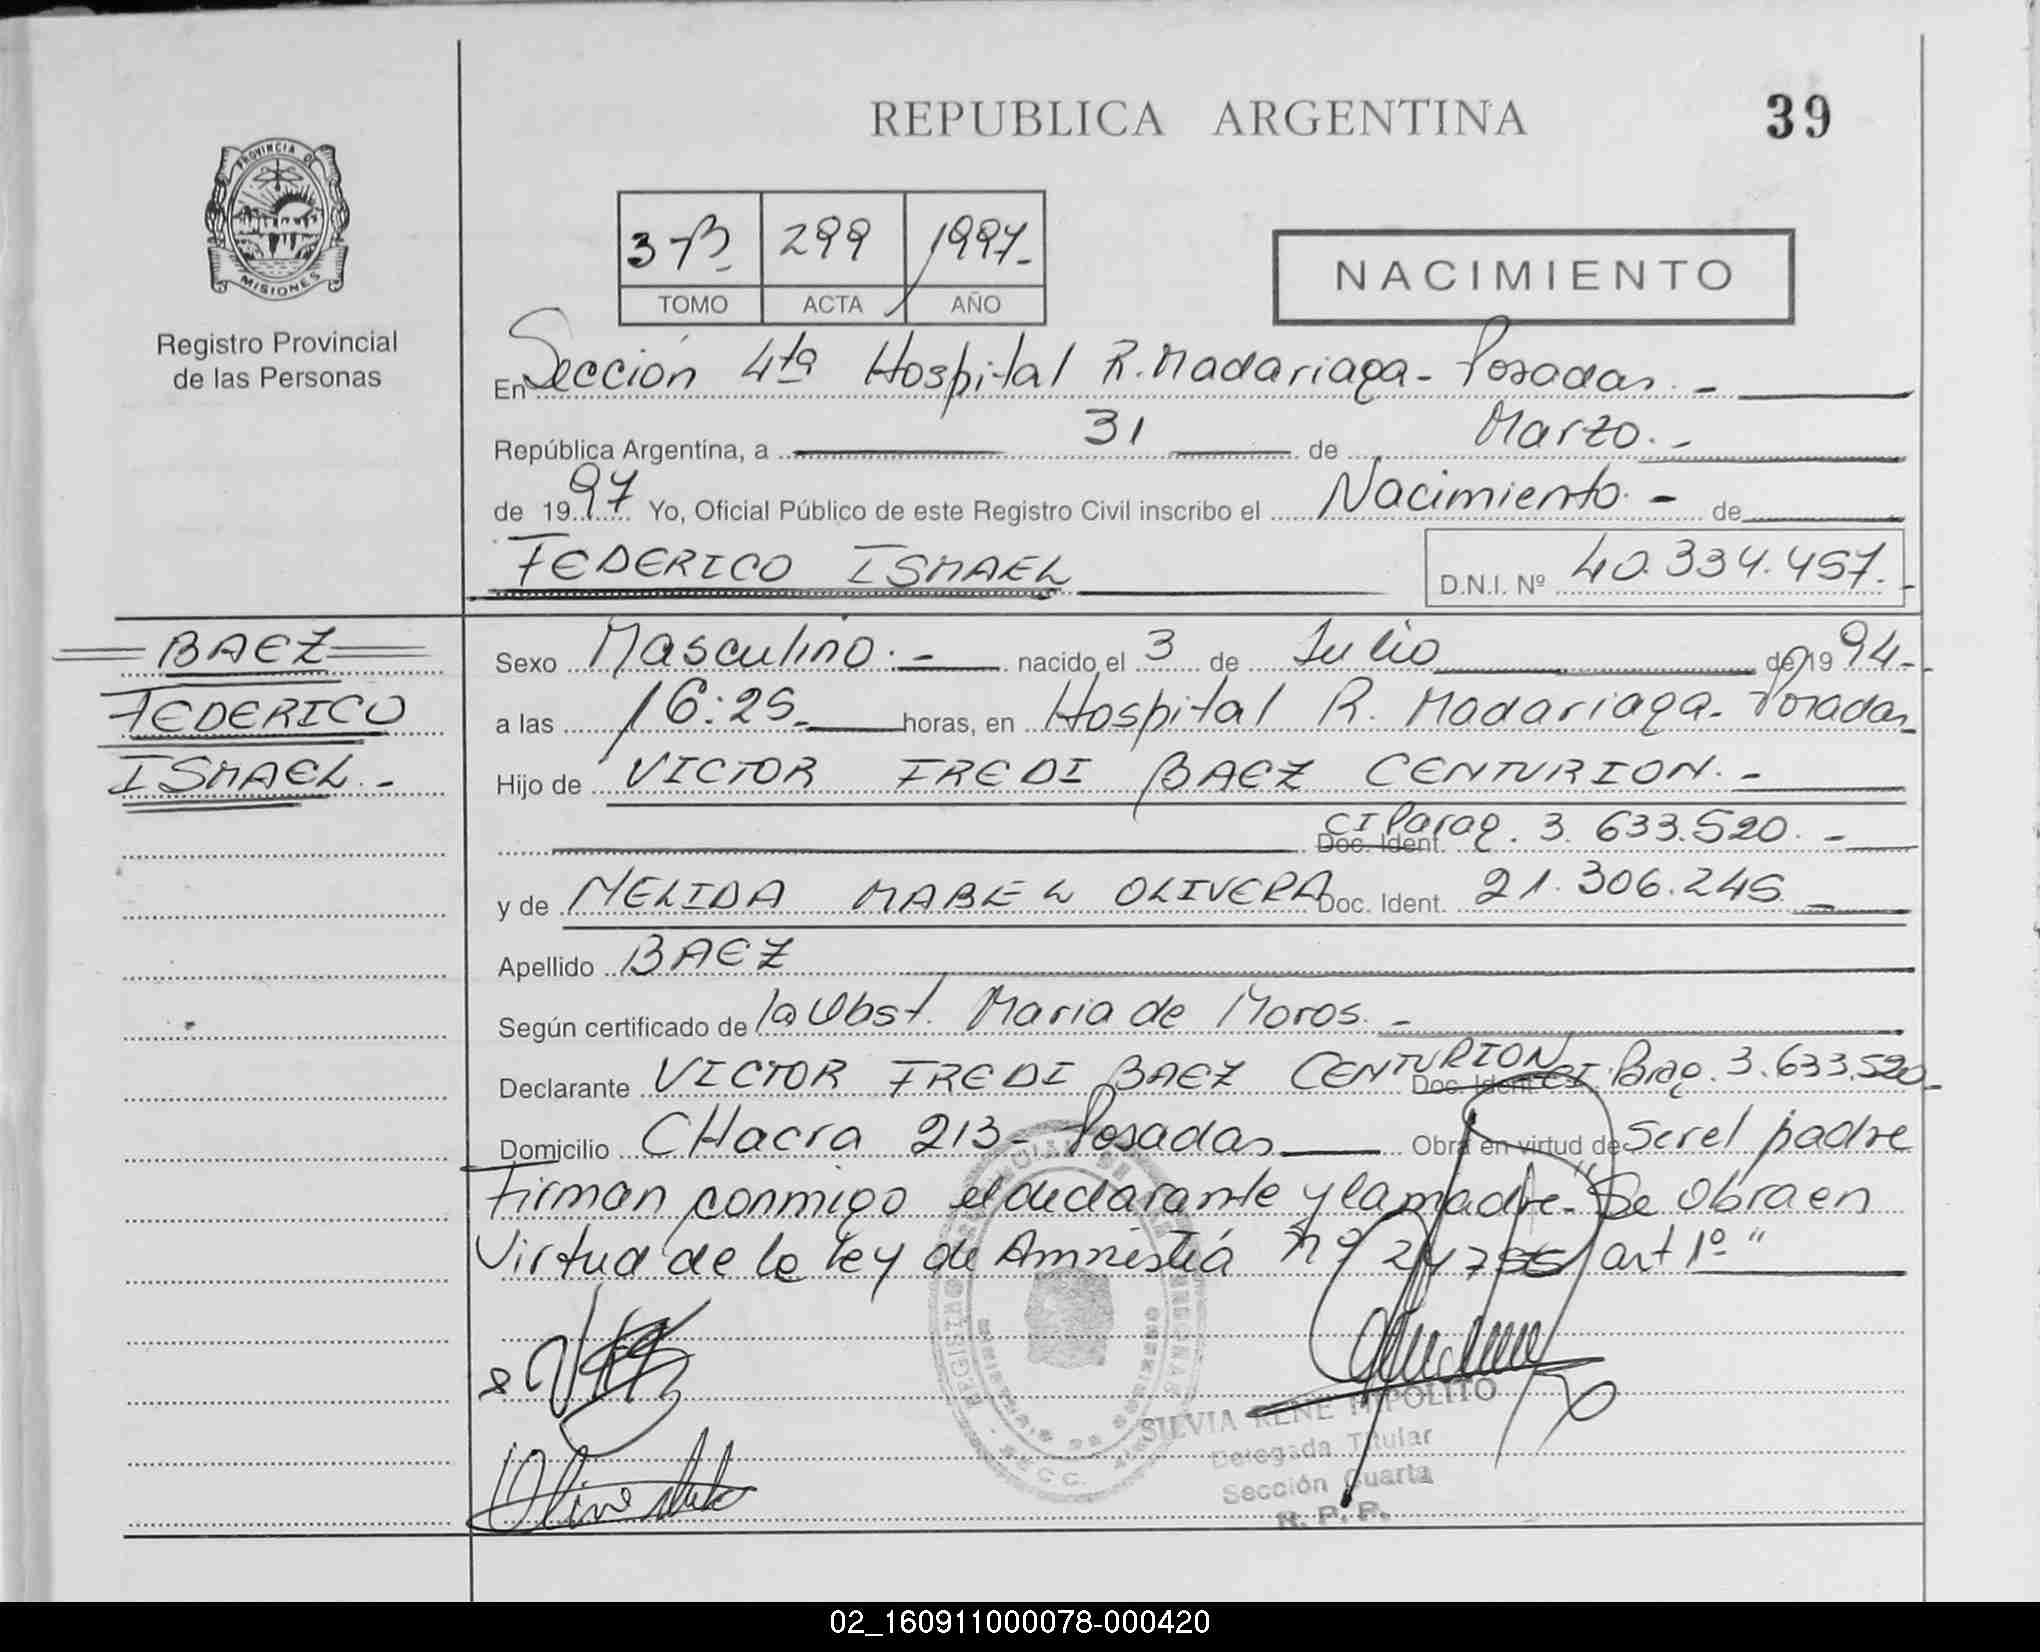 REPUBLICA ARGENTINA
39
PROVINCIA DE
MISIONES
Registro Provincial
de las Personas
3-B- 299 1997.-
TOMO ACTA AÑO
NACIMIENTO
En Sección 4ta Hospital R. Madariaga - Posadas. -
República Argentina, a 31 de Marzo. -
de 1997 Yo, Oficial Público de este Registro Civil inscribo el Nacimiento. - de
FEDERICO ISMAEL
D.N.I. Nº 40.334.457. -
BAEZ
FEDERICO
ISMAEL. -
Sexo Masculino. - nacido el 3 de Julio de 1994.-
a las 16:25.- horas, en Hospital R. Madariaga - Posadas
Hijo de VICTOR FREDI BAEZ CENTURION. -
Doc. Ident. CI Parag. 3.633.520. -
y de NELIDA MABEL OLIVERA Doc. Ident. 21.306.245. -
Apellido BAEZ
Según certificado de la Obst. Maria de Moros. -
Declarante VICTOR FREDI BAEZ CENTURION Doc. Ident. CI. Parag. 3.633.520 -
Domicilio CHacra 213 - Posadas Obra en virtud de Ser el padre
Firman conmigo el declarante y la madre. - "Se obra en
Virtud de la ley de Amnistiá nº art 1º"
SILVIA RENE HIPOLITO
Delegada Titular
Sección Cuarta
R. P. P.
02_160911000078-000420